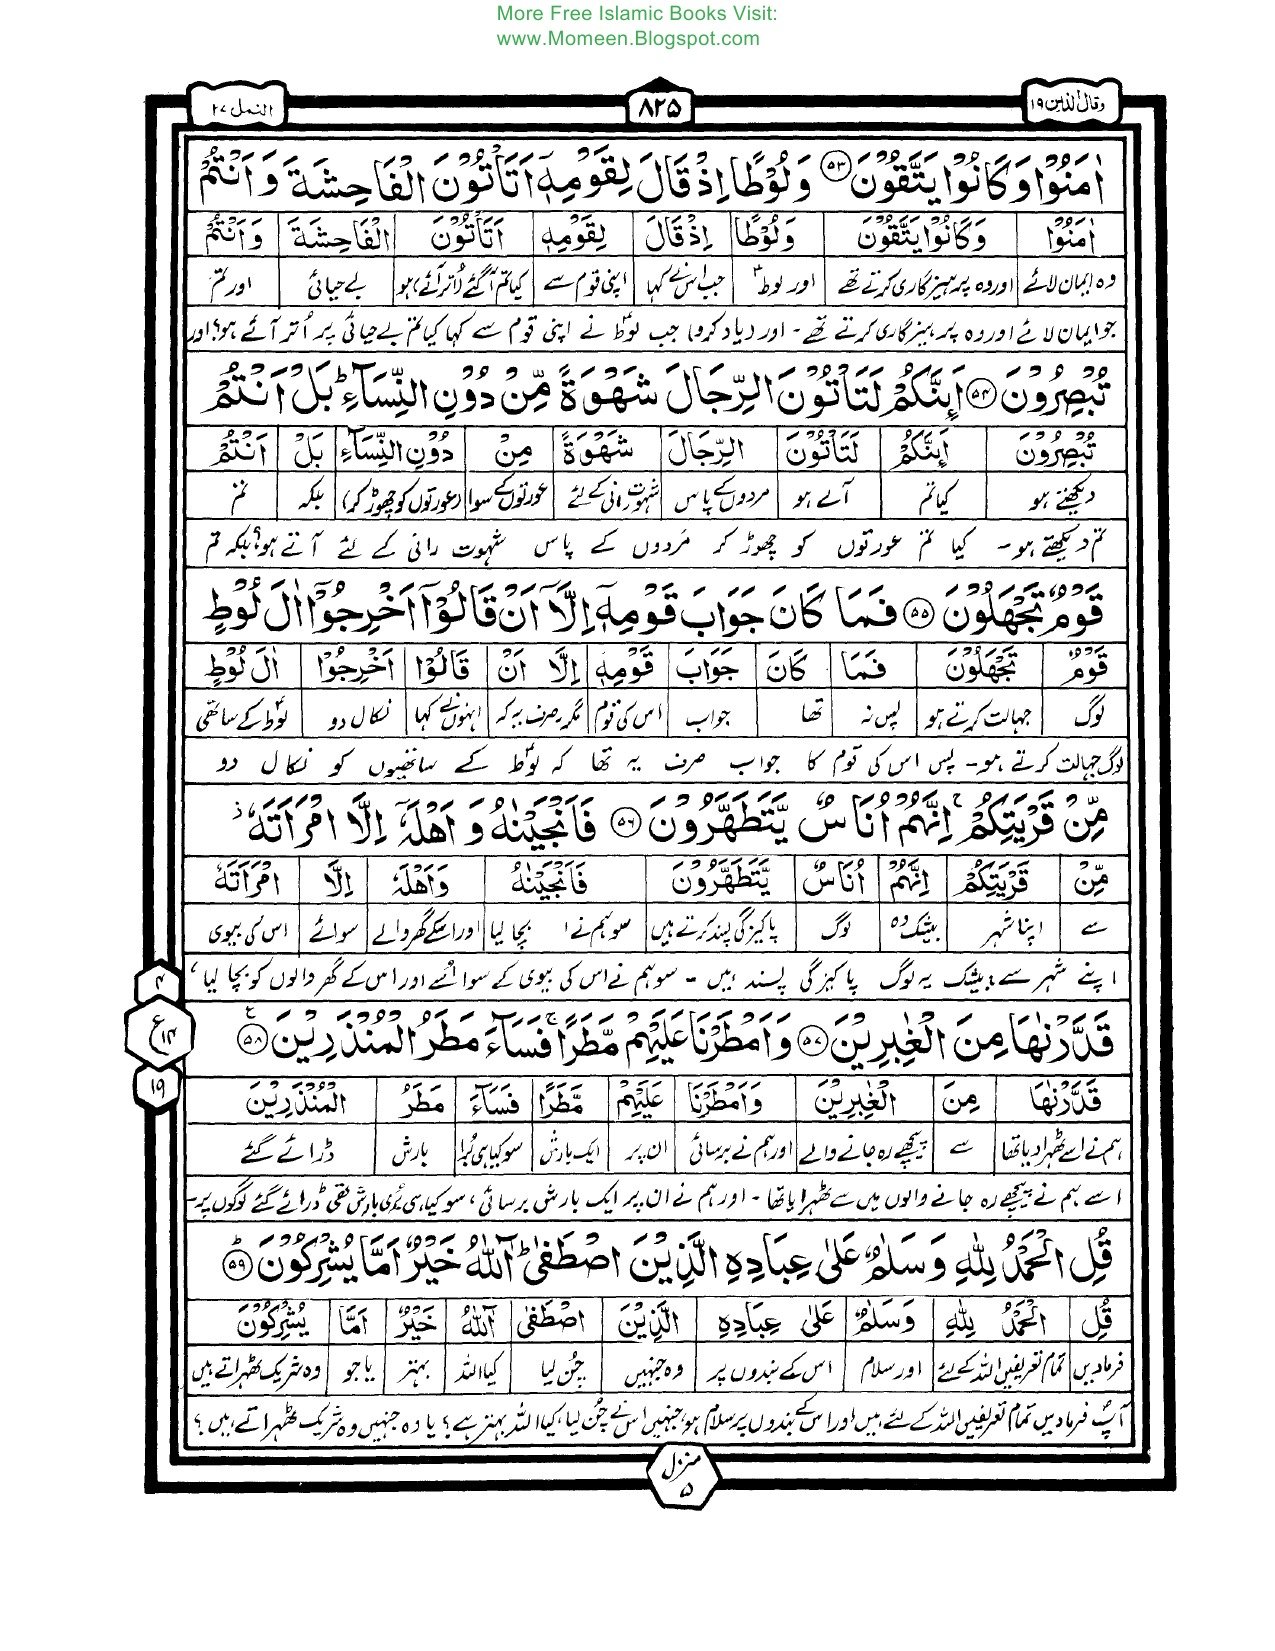 More Free Islamic Books Visit:
www.Momeen.Blogspot.com
وقال الذین ۱۹
۸۲۵
النمل ۲۷
اٰمَنُوْا وَكَانُوْا یَتَّقُوْنَ ۵۳ وَلُوْطًا اِذْ قَالَ لِقَوْمِهٖۤ اَتَاْتُوْنَ الْفَاحِشَةَ وَاَنْتُمْ
اٰمَنُوْا وَكَانُوْا یَتَّقُوْنَ وَلُوْطًا اِذْ قَالَ لِقَوْمِهٖ اَتَاْتُوْنَ الْفَاحِشَةَ وَاَنْتُمْ
وہ ایمان لائے اور وہ پرہیزگاری کرتے تھے اور لوط جب اس نے کہا اپنی قوم سے کیا تم آگئے (اتر آئے) ہو بے حیائی اور تم
جو ایمان لائے اور وہ پرہیزگاری کرتے تھے۔ اور (یاد کرو) جب لوط نے اپنی قوم سے کہا کیا تم بے حیائی پر اتر آئے ہو؟ اور
تُبْصِرُوْنَ ۵۴ اَىِٕنَّكُمْ لَتَاْتُوْنَ الرِّجَالَ شَهْوَةً مِّنْ دُوْنِ النِّسَآءِؕ بَلْ اَنْتُمْ
تُبْصِرُوْنَ اَىِٕنَّكُمْ لَتَاْتُوْنَ الرِّجَالَ شَهْوَةً مِنْ دُوْنِ النِّسَآءِ بَلْ اَنْتُمْ
دیکھتے ہو کیا تم آتے ہو مردوں کے پاس شہوت رانی کے لئے عورتوں کے سوا (عورتوں کو چھوڑ کر) بلکہ تم
تم دیکھتے ہو۔ کیا تم عورتوں کو چھوڑ کر مردوں کے پاس شہوت رانی کے لئے آتے ہو؟ بلکہ تم
قَوْمٌ تَجْهَلُوْنَ ۵۵ فَمَا كَانَ جَوَابَ قَوْمِهٖۤ اِلَّاۤ اَنْ قَالُوْۤا اَخْرِجُوْۤا اٰلَ لُوْطٍ
قَوْمٌ تَجْهَلُوْنَ فَمَا كَانَ جَوَابَ قَوْمِهٖ اِلَّا اَنْ قَالُوْا اَخْرِجُوْا اٰلَ لُوْطٍ
لوگ جہالت کرتے ہو پس نہ تھا جواب اس کی قوم مگر۔ صرف یہ کہ انہوں نے کہا نکال دو لوط کے ساتھی
لوگ جہالت کرتے ہو۔ پس اس کی قوم کا جواب صرف یہ تھا کہ لوط کے ساتھیوں کو نکال دو
مِّنْ قَرْیَتِكُمْ ۚ اِنَّهُمْ اُنَاسٌ یَّتَطَهَّرُوْنَ ۵۶ فَاَنْجَیْنٰهُ وَ اَهْلَهٗۤ اِلَّا امْرَاَتَهٗ ؗ
مِّنْ قَرْیَتِكُمْ اِنَّهُمْ اُنَاسٌ یَّتَطَهَّرُوْنَ فَاَنْجَیْنٰهُ وَاَهْلَهٗ اِلَّا امْرَاَتَهٗ
سے اپنا شہر بیشک وہ لوگ پاکیزگی پسند کرتے ہیں سو ہم نے بچا لیا اور اسکے گھر والے سوائے اس کی بیوی
اپنے شہر سے، بیشک یہ لوگ پاکیزگی پسند ہیں۔ سو ہم نے اس کی بیوی کے سوائے اور اس کے گھر والوں کو بچا لیا،
قَدَّرْنٰهَا مِنَ الْغٰبِرِیْنَ ۵۷ وَاَمْطَرْنَا عَلَیْهِمْ مَّطَرًا ۚ فَسَآءَ مَطَرُ الْمُنْذَرِیْنَ ۵۸ ع
قَدَّرْنٰهَا مِنَ الْغٰبِرِیْنَ وَاَمْطَرْنَا عَلَیْهِمْ مَّطَرًا فَسَآءَ مَطَرُ الْمُنْذَرِیْنَ
ہم نے اسے ٹھہرا دیا تھا سے پیچھے رہ جانے والے اور ہم نے برسائی ان پر ایک بارش سو کیا ہی برا بارش ڈرائے گئے
اسے ہم نے پیچھے رہ جانے والوں میں سے ٹھہرایا تھا۔ اور ہم نے ان پر ایک بارش برسائی، سو کیا ہی بری بارش تھی ڈرائے گئے لوگوں پر۔
۴
ع ۱۴
۱۹
قُلِ الْحَمْدُ لِلّٰهِ وَسَلٰمٌ عَلٰى عِبَادِهِ الَّذِیْنَ اصْطَفٰىؕ آٰللّٰهُ خَیْرٌ اَمَّا یُشْرِكُوْنَؕ ۵۹
قُلِ الْحَمْدُ لِلّٰهِ وَسَلٰمٌ عَلٰى عِبَادِهِ الَّذِیْنَ اصْطَفٰى آٰللّٰهُ خَیْرٌ اَمَّا یُشْرِكُوْنَ
فرمادیں تمام تعریفیں اللہ کے لئے اور سلام اس کے بندوں پر وہ جنہیں چن لیا کیا اللہ بہتر یا جو وہ شریک ٹھہراتے ہیں
آپ فرمادیں تمام تعریفیں اللہ کے لئے ہیں اور اس کے بندوں پر سلام ہو، جنہیں اس نے چن لیا، کیا اللہ بہتر ہے؟ یا وہ جنہیں وہ شریک ٹھہراتے ہیں؟
منزل ۵